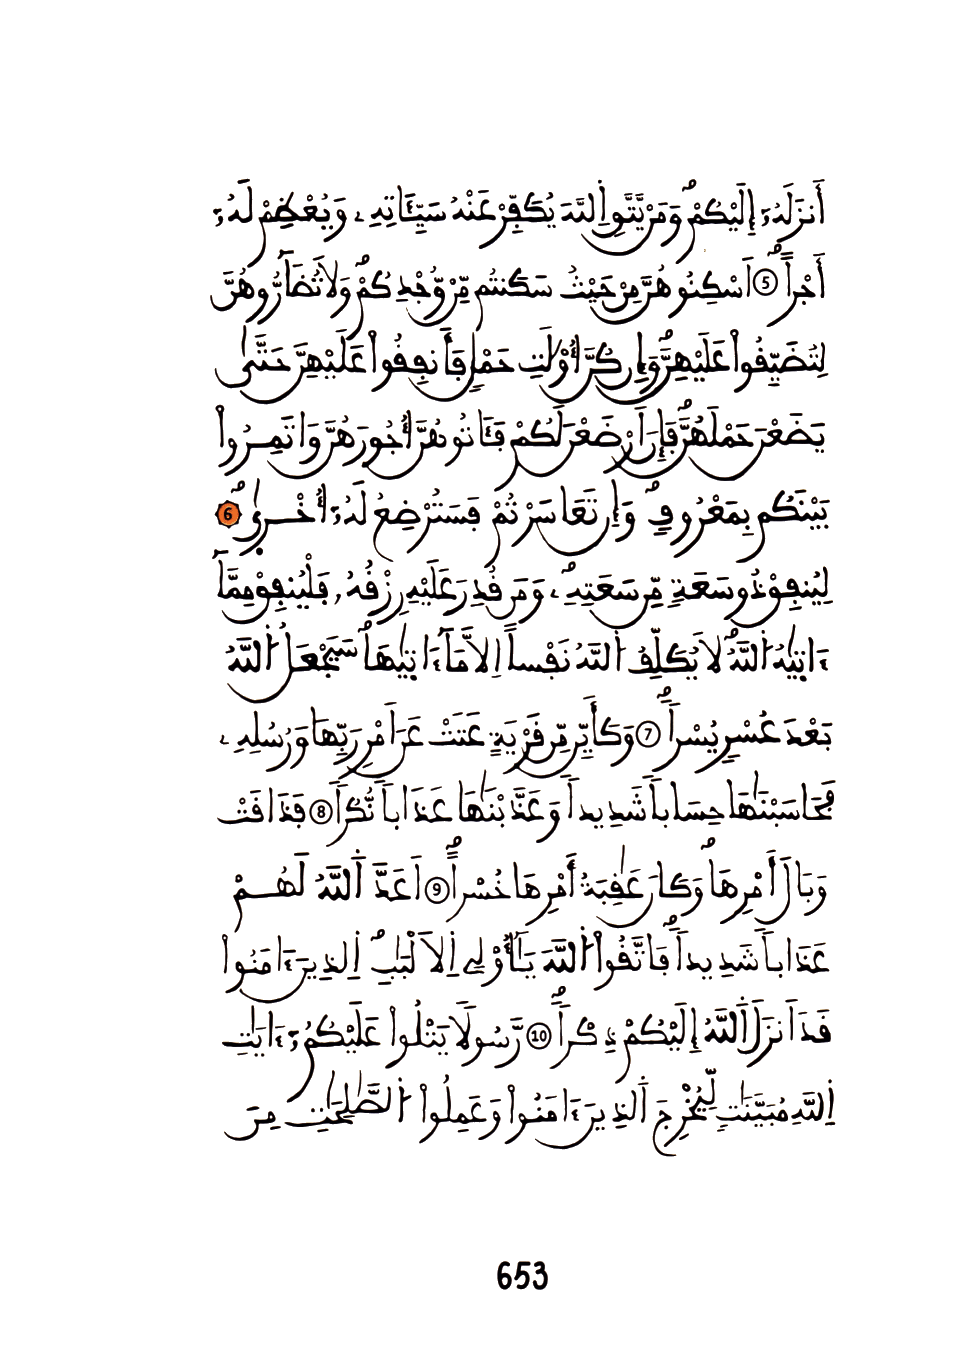 أَنزَلَهُۥٓ إِلَيْكُمْۖ وَمَنْ يَّتَّقِ اِ۬للَّهَ يُكَفِّرْ عَنْهُ سَيِّـَٔاتِهِۦ وَيُعْظِمْ لَهُۥٓ
أَجْراًۖ 5 اَسْكِنُوهُنَّ مِنْ حَيْثُ سَكَنتُم مِّنْ وُّجْدِكُمْۖ وَلَا تُضَآرُّوهُنَّ
لِتُضَيِّقُواْ عَلَيْهِنَّۖ وَإِن كُنَّ أُوْلَٰتِ حَمْلٖ فَأَنفِقُواْ عَلَيْهِنَّ حَتَّىٰ
يَضَعْنَ حَمْلَهُنَّۖ فَإِنَ اَرْضَعْنَ لَكُمْ فَـَٔاتُوهُنَّ أُجُورَهُنَّ وَاتَمِرُواْ
بَيْنَكُم بِمَعْرُوفٖۖ وَإِن تَعَاسَرْتُمْ فَسَتُرْضِعُ لَهُۥٓ أُخْر۪ىٰۖ 6
لِيُنفِقْ ذُو سَعَةٖ مِّن سَعَتِهِۦۖ وَمَن قُدِرَ عَلَيْهِ رِزْقُهُۥ فَلْيُنفِقْ مِمَّآ
ءَات۪يٰهُ اُ۬للَّهُۖ لَا يُكَلِّفُ اُ۬للَّهُ نَفْساً اِلَّا مَآ ءَات۪يٰهَاۖ سَيَجْعَلُ اُ۬للَّهُ
بَعْدَ عُسْرٖ يُسْراٗۖ 7 وَكَأَيِّن مِّن قَرْيَةٍ عَتَتْ عَنَ اَمْرِ رَبِّهَا وَرُسُلِهِۦ
فَحَاسَبْنَٰهَا حِسَاباٗ شَدِيداٗ وَعَذَّبْنَٰهَا عَذَاباٗ نُّكُراٗ 8 فَذَاقَتْ
وَبَالَ أَمْرِهَاۖ وَكَانَ عَٰقِبَةُ أَمْرِهَا خُسْراًۖ 9 اَعَدَّ اَ۬للَّهُ لَهُمْ
عَذَاباٗ شَدِيداٗۖ فَاتَّقُواْ اُ۬للَّهَ يَٰٓأُوْلِے اِ۬لَالْبَٰبِۖ اِ۬لذِينَ ءَامَنُواْ
قَدَ اَنزَلَ اَ۬للَّهُ إِلَيْكُمْ ذِكْراٗۖ 10 رَّسُولاٗ يَتْلُواْ عَلَيْكُمُۥٓ ءَايَٰتِ
اِ۬للَّهِ مُبَيَّنَٰتٖ لِّيُخْرِجَ اَ۬لذِينَ ءَامَنُواْ وَعَمِلُواْ اُ۬لصَّٰلِحَٰتِ مِنَ
653